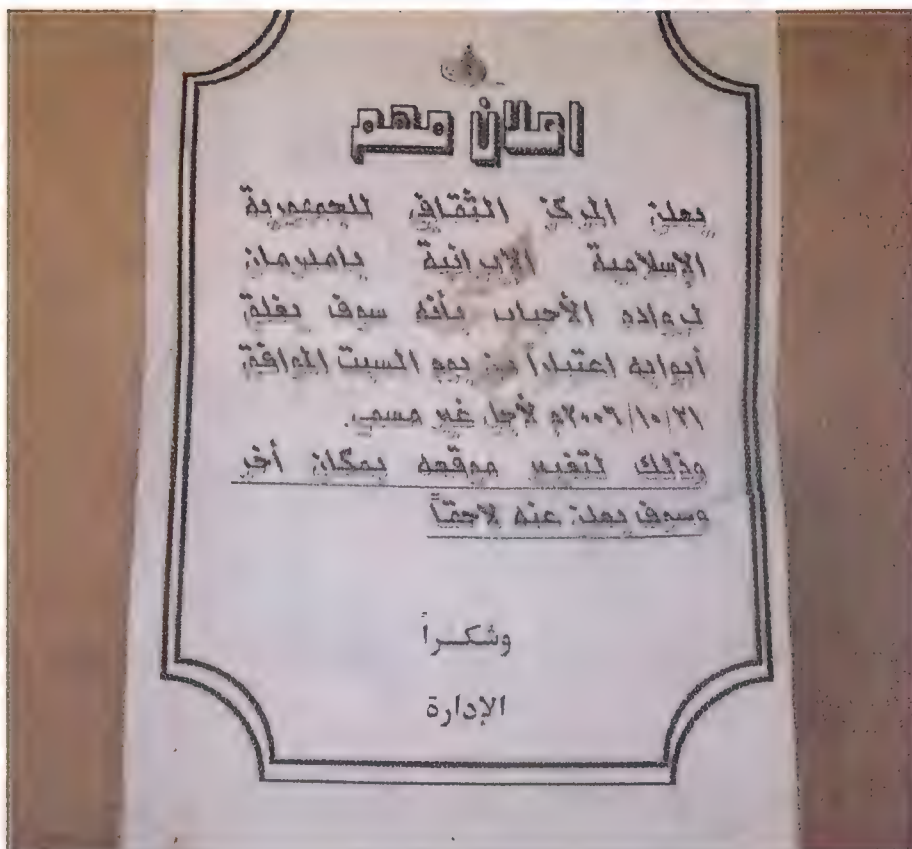 اعلان مهم
يعلن المركز الثقافي للجمهورية
الإسلامية الإيرانية بامدرمان
لرواده الأحباب بأنه سوف يغلق
أبوابه اعتباراً من يوم السبت الموافق
٢٠٠٦/١٠/٢١م لأجل غير مسمى
وذلك لتغيير موقعه بمكان أخر
وسوف يعلن عنه لاحقاً
وشكراً
الإدارة